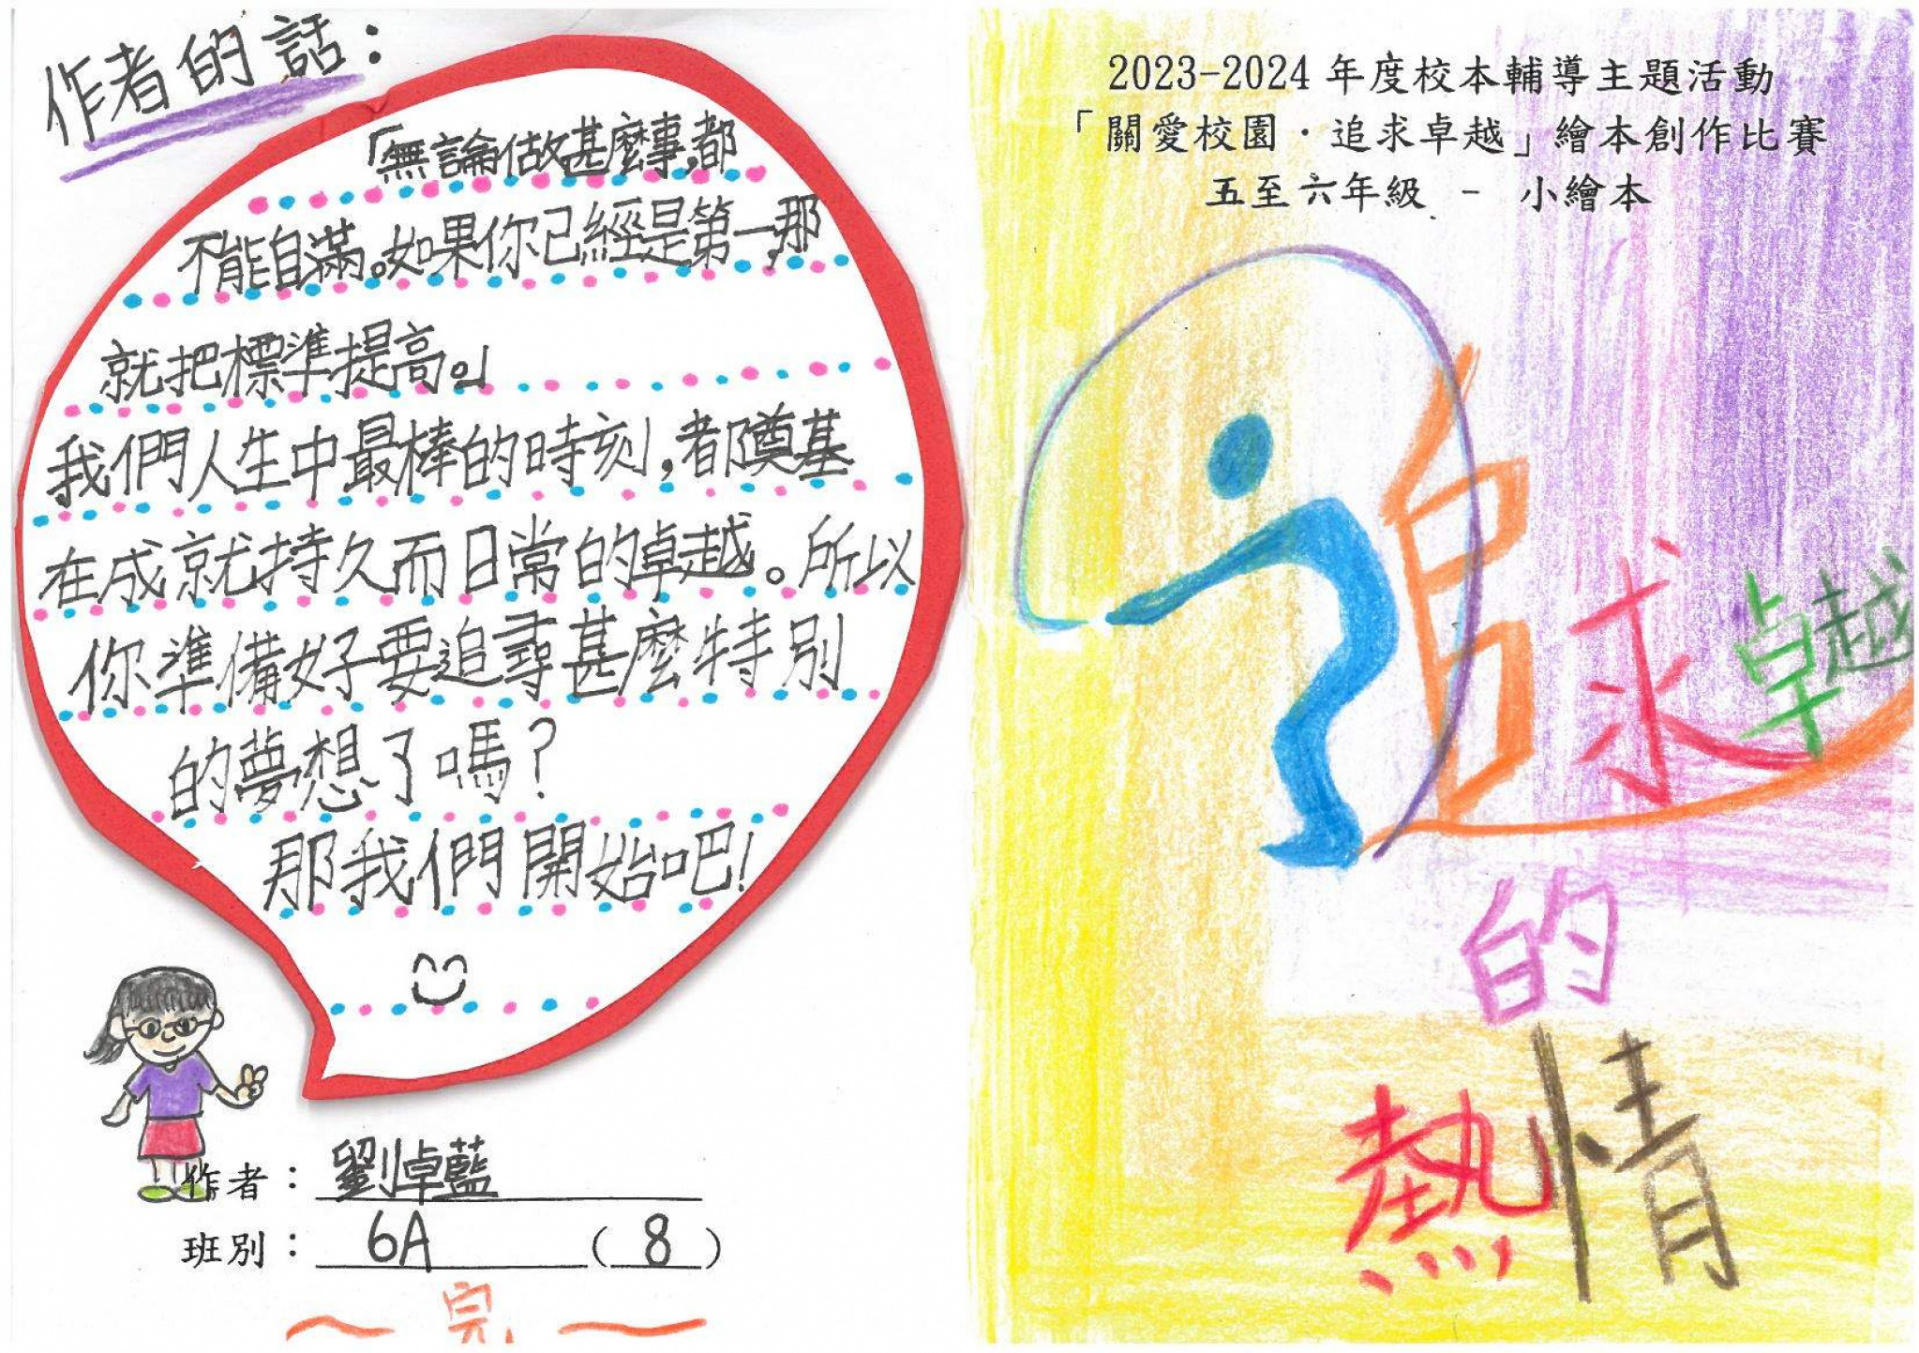 作者的話：
「無論做甚麼事,都
不能自滿。如果你已經是第一,那
就把標準提高。」
我們人生中最棒的時刻,都奠基
在成就持久而日常的卓越。所以
你準備好要追尋甚麼特別
的夢想了嗎？
那我們開始吧!
作者：劉倬藍
班別：6A (8)
完
2023-2024 年度校本輔導主題活動
「關愛校園·追求卓越」繪本創作比賽
五至六年級 - 小繪本
追求卓越
的
熱情